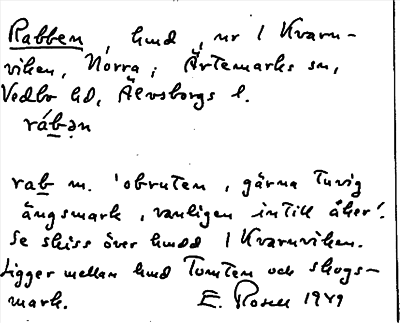 Rabben, hmd, nr 1 Kvarn-
viken, Norra; Ärtemarks sn,
Vedbo hd, Älvsborgs l.
rábən
rab m. 'obruten, gärna tuvig
ängsmark, vanligen intill åker'.
Se skiss över hmdd 1 Kvarnviken.
Ligger mellan hmd Tomten och skogs-
mark. E. Rosell 1949